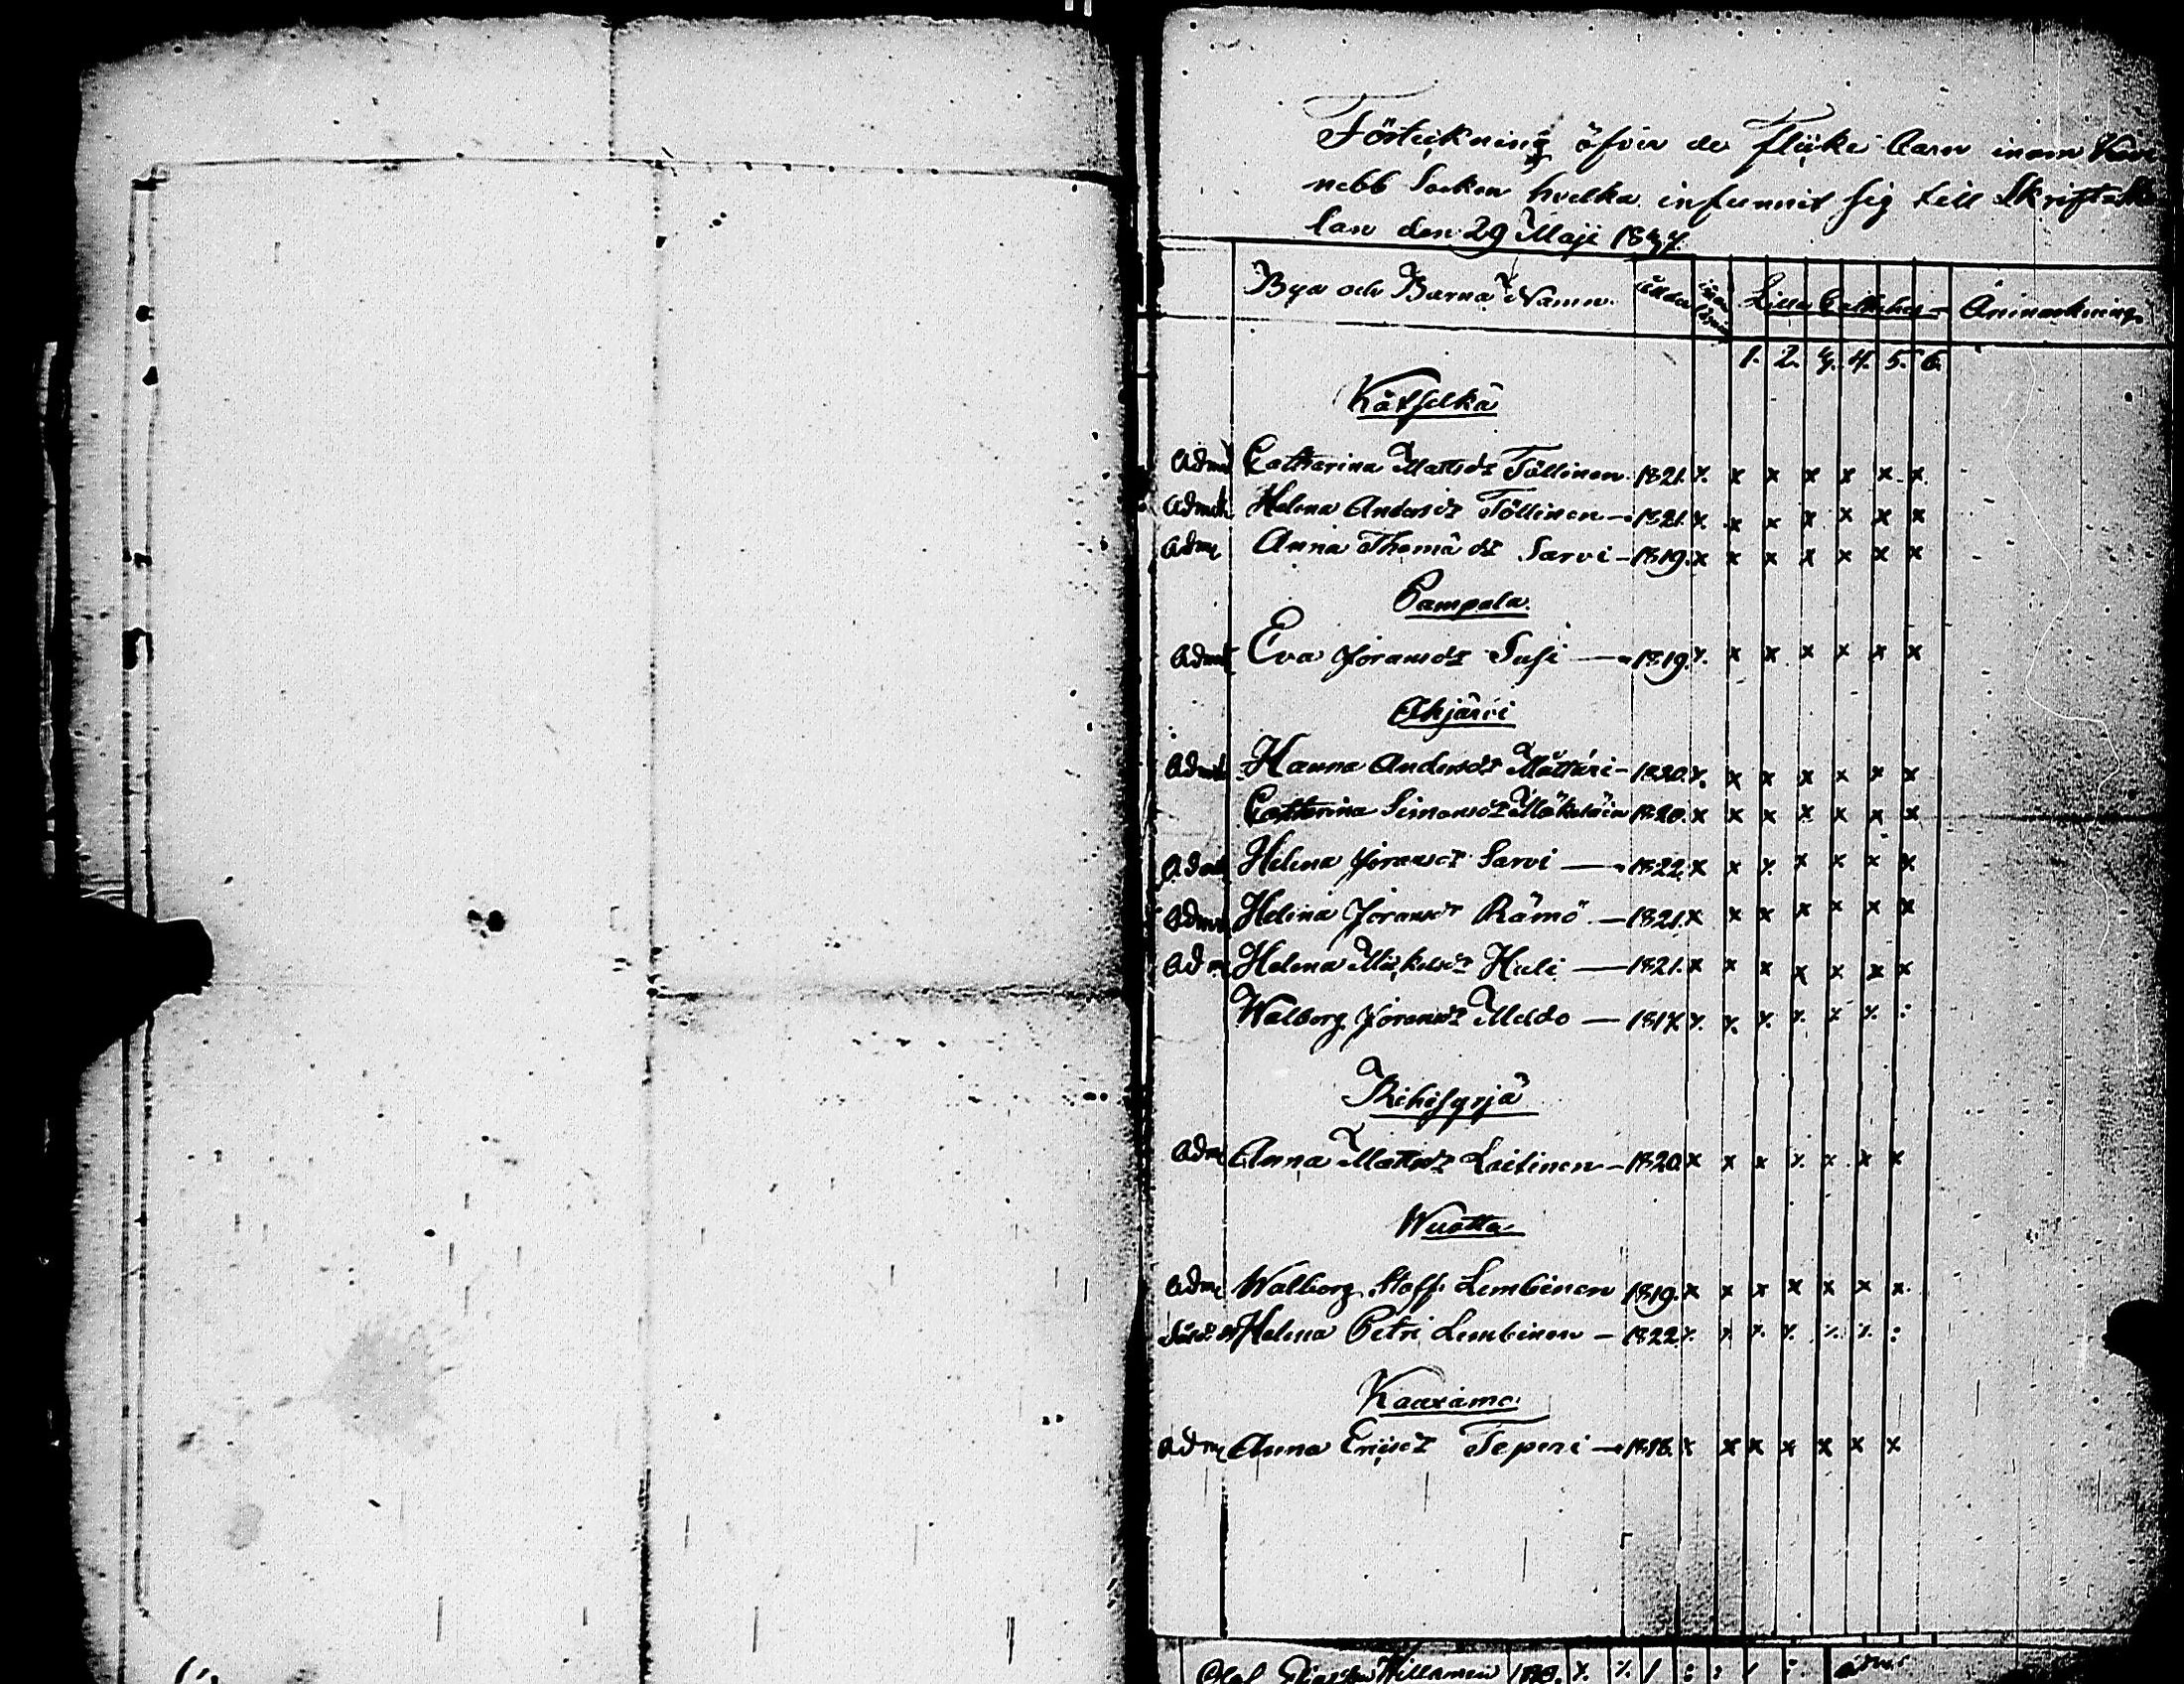 Förteckning öfver de Flicke Barn inom Kivi
nebb Socken hvilka infunnit sig till Skrift-Sko
lan den 29 Maji 1837.
Bya och Barna Namn. Ålder Läsn Lilla Catches Anmärkning
1. 2. 3. 4. 5. 6.
Kätselkä
Admit Catharina Mattsdr Töllinen 1821. ⁒ x x x x x x
Admit Helena Andersdr Töllinen 1821. x x x x x x x
Adm Anna Thomä dr Sarvi 1819. x x x x x x x
Pampala
Admit Eva Joransdr Susi 1819. ⁒ x x x x x x
Ahjärvi
Admit Hanna Andersdr Måttäri 1820. ⁒ x x x x x x
Catharina Simonsdr Mäkeläin 1820. x x x x x x x
Admit Helena Joransdr Sarvi 1822. x x ⁒ x x x x
Admit Helena Joransdr Rämö 1821. x x x x x x x
Adm Helena Mickelsdr Huli 1821. x x x x x x x
Walborg Joransdr Meldo 1817. ⁒ ⁒ ⁒ ⁒ ⁒ ⁒ :
Rihisyrjä
Adm Anna Mattsdr Laitinen 1820. x x x ⁒ x x x
Wuotta
Adm Walborg Staff. Lembinen 1819. x x x x x x x
Helena Petri Lembinen 1822. ⁒ ⁒ ⁒ ⁒ ⁒ ⁒ :
Kaaxamo
Adm Anna Ericsdr Teperi 1818. x x x x x x x
Olof